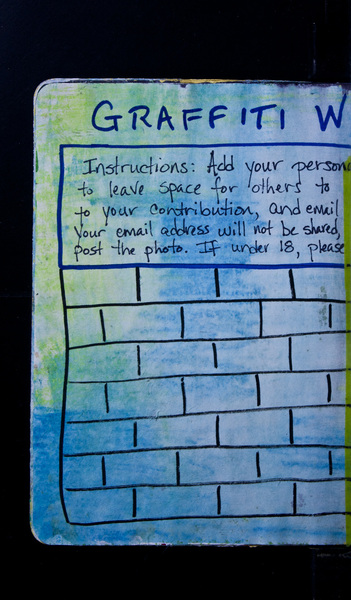 GRAFFITI W
Instructions: Add your persona
to leave space for others to
to your contribution, and email
your email address will not be shared,
post the photo. If under 18, please